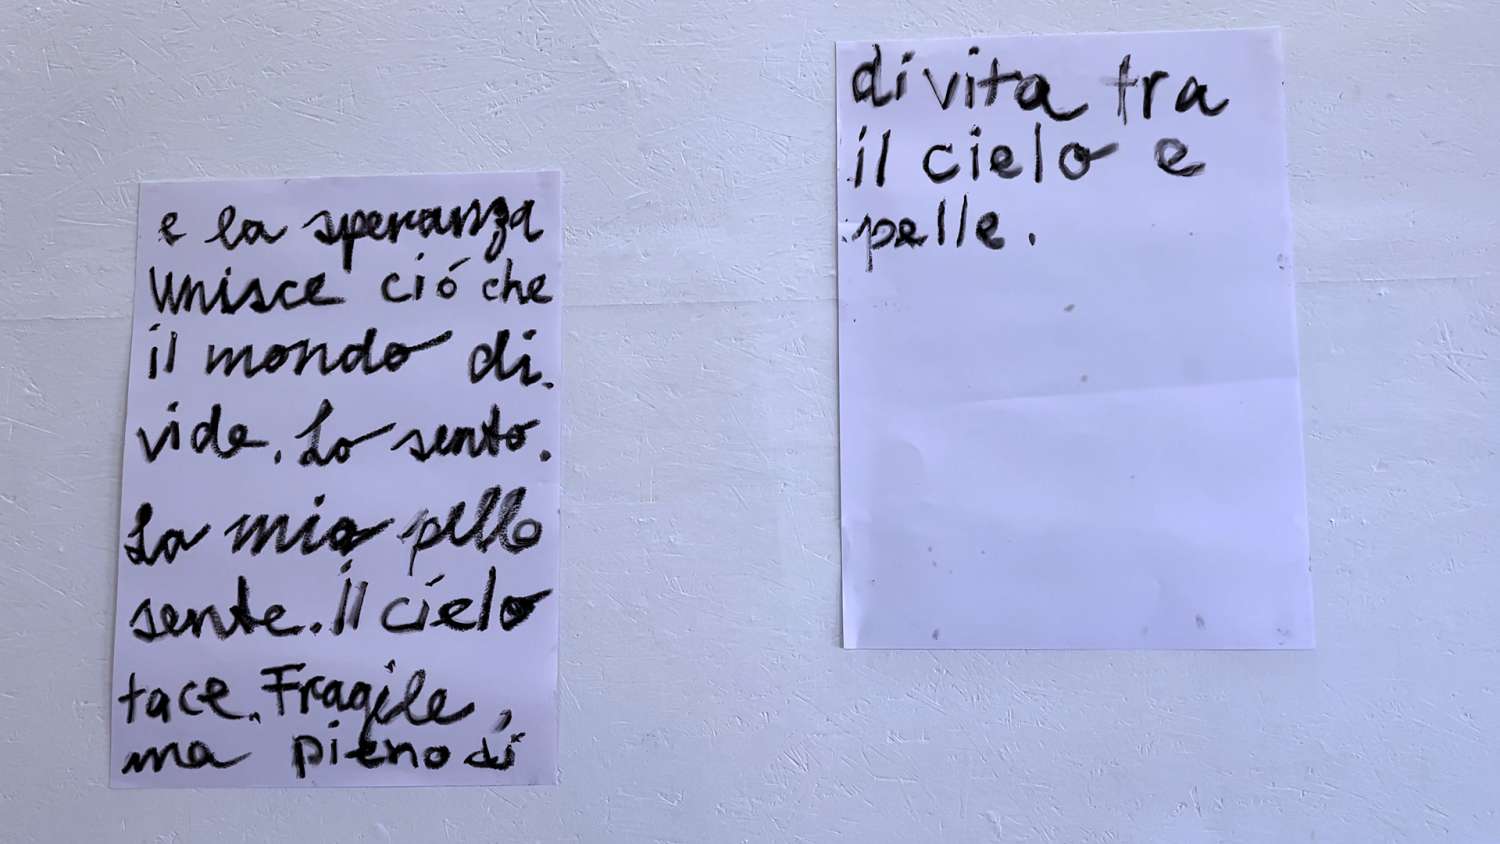 e la speranza
unisce ció che
il mondo di.
vide. Lo sento.
La mia pelle
sente. Il cielo
tace. Fragile,
ma pieno di
di vita tra
il cielo e
pelle.